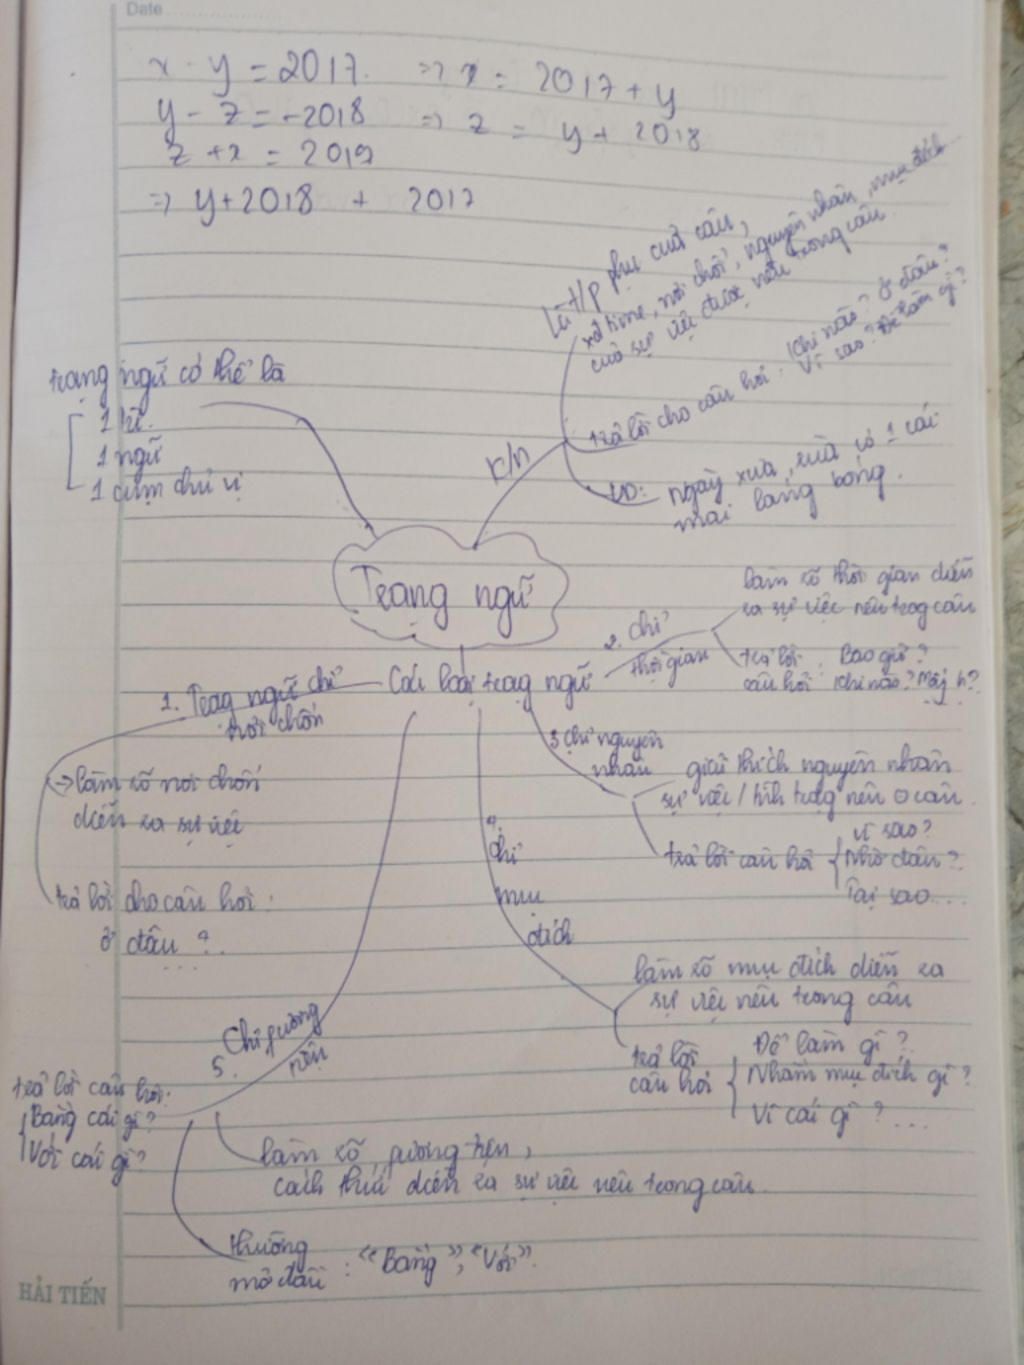 Date
x - y = 2017. => x = 2017 + y
y - z = -2018 => z = y + 2018
z + x = 2019
=> y + 2018 + 2017
Là t/p phụ của câu,
xđ time, nơi chốn, nguyên nhân, mục đích
của sự việc được nêu trong câu
trả lời cho câu hỏi: Khi nào? Ở đâu?
Vì sao? Để làm gì?
VD: ngày xưa, rùa có 1 cái
mai láng bóng.
K/n
Trạng ngữ có thể là
1 từ.
1 ngữ
1 cụm chủ vị
Trạng ngữ
Các loại trạng ngữ
1. Trạng ngữ chỉ
nơi chốn
-> làm rõ nơi chốn
diễn ra sự việc
trả lời cho câu hỏi:
ở đâu?...
2. chỉ
thời gian
làm rõ thời gian diễn
ra sự việc nêu trog câu
trả lời
câu hỏi : Bao giờ?
Khi nào? Mấy h?
3 chỉ nguyên
nhân
giải thích nguyên nhân
sự việc / tình trạg nêu ở câu
trả lời câu hỏi
Vì sao?
Nhờ đâu?
Tại sao...
4.
chỉ
mục
đích
làm rõ mục đích diễn ra
sự việc nêu trong câu
trả lời
câu hỏi
Để làm gì?
Nhằm mục đích gì?
Vì cái gì?...
5. Chỉ fương
tiện
trả lời câu hỏi:
Bằng cái gì?
Với cái gì?
làm rõ fương tiện,
cách thức diễn ra sự việc nêu trong câu.
thường
mở đầu : "Bằng", "Với".
HẢI TIẾN